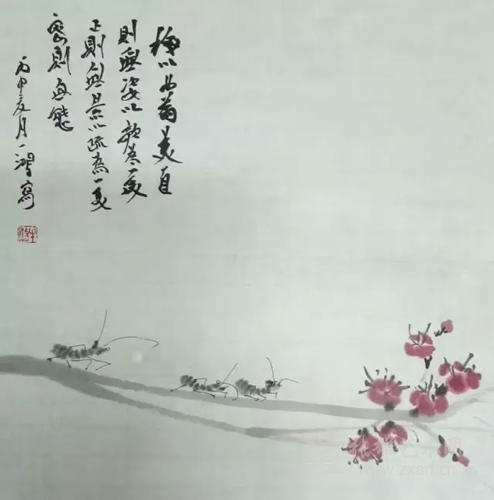 梅以曲為美直
則無姿以欹為美
正則無景以疏為美
密則無態
丙申夏月一鴻寫